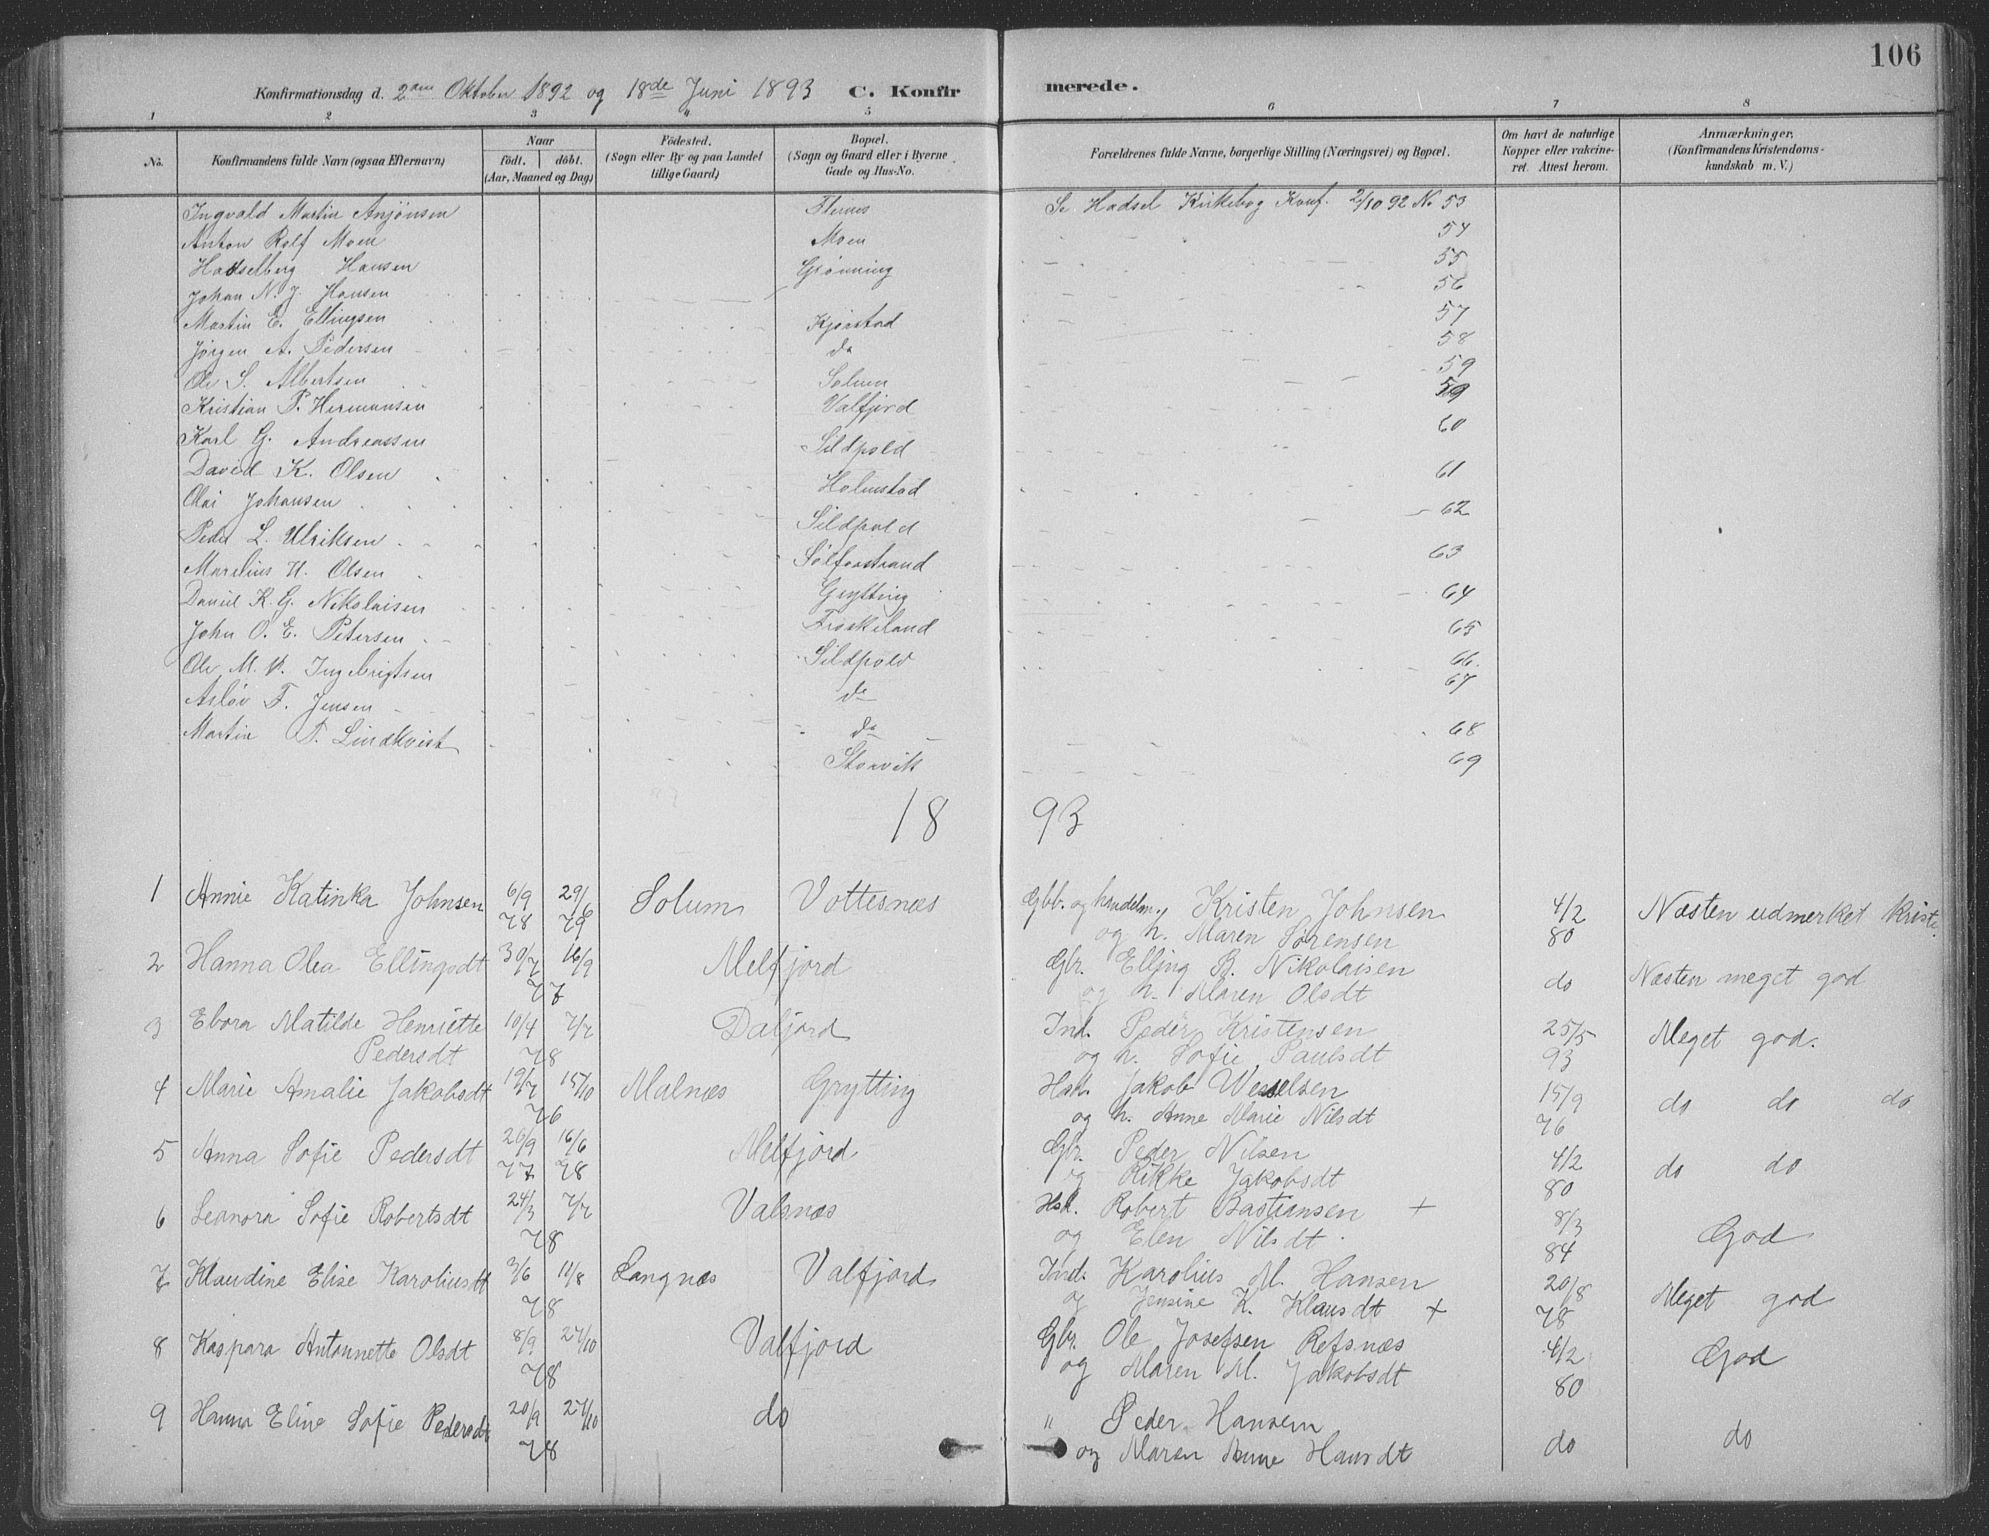 106
Konfirmationsdag d. 2den Oktober 1892 og 18de Juni 1893 C. Konfir merede.
1 2 3 4 5 6 7 8
No. Konfirmandens fulde Navn (ogsaa Efternavn) Naar födt. döbt. (Aar, Maaned og Dag) Födested. (Sogn eller By og paa Landet tillige Gaard) Bopæl. (Sogn og Gaard eller i Byerne Gade og Hus-No. Forældrenes fulde Navne, borgerlige Stilling (Næringsvei) og Bopæl. Om havt de naturlige Kopper eller vakcineret. Attest herom. Anmærkninger. (Konfirmandens Kristendomskundskab m. V.)
Ingvald Martin Anjönsen Se Hadsel Kirkebog Konf. 2/10 92 No 53
Anton Rolf Moen Moen 54
Hadselberg Hansen Grönning 55
Johan N. J. Hansen 56
Martin E. Ellingsen Kjörstad 57
Jörgen A. Pedersen do 58
Ole S. Albertsen Solum 59
Kristian P. Hermansen Valfjord 59
Karl G. Andreassen Sildpold 60
David K. Olsen Holmstad 61
Olai Johansen Sildpold 62
Peder L. Ulriksen Sölfarstrand 63
Marelius H. Olsen Grytting 64
Daniel K. G. Nikolaisen Froskeland 65
John O. E. Petersen Sildpold 66
Ole M. P. Ingebrigtsen do 67
Aslöv F. Jensen do 68
Martin T. Lindkvist Storvik 69
18 93
1 Annie Katinka Johnsen 6/9 78 29/6 79 Solum Vottesnæs Gbb. og handelm. Kristen Johnsen 4/2 80 Næsten udmerket krist.
og h. Maren Sörensen
2 Hanna Olea Ellingsdt 30/7 16/9 77 Melfjord Gbr. Elling B. Nikolaisen do Næsten meget god
og h. Maren Olsdt
3 Ebora Matilde Henriette 10/4 7/7 78 Dalfjord Ind. Peder Kristensen 25/5 93 Meget god.
Pedersdt og h. Sofie Paulsdt
4 Marie Amalie Jakobsdt 19/7 15/10 76 Malnæs Grytting Hsk. Jakob Wesselsen 15/9 76 do do do
og h. Anne Marie Nilsdt
5 Anna Sofie Pedersdt 26/9 77 16/6 78 Melfjord Gbr. Peder Nilsen 4/2 80 do do
og Rikke Jakobsdt
6 Leonora Sofie Robertsdt 24/3 7/7 78 Valsnæs Hsk. Robert Bastiansen + 8/3 84 God
og Elen Nilsdt.
7 Klaudine Elise Karoliusdt 2/6 11/8 78 Langnæs Valfjord Ind. Karolius M. Hansen 20/8 78 Meget god
og Jensine K. Klausdt +
8 Kaspara Antonnette Olsdt 8/9 27/10 78 Valfjord Gbr. Ole Josefsen Refsnæs 4/2 80 God
og Maren M. Jakobsdt
9 Hanna Eline Sofie Pedersdt 20/9 27/10 78 do " Peder Hansen do do
og Maren Anne Hansdt